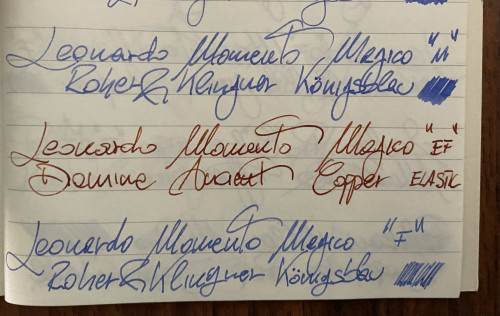 Leonardo Momento Magico "M"
Rohrer & Klingner Königsblau
Leonardo Momento Magico "EF"
Diamine Ancient Copper ELASTIC
Leonardo Momento Magico "F"
Rohrer & Klingner Königsblau